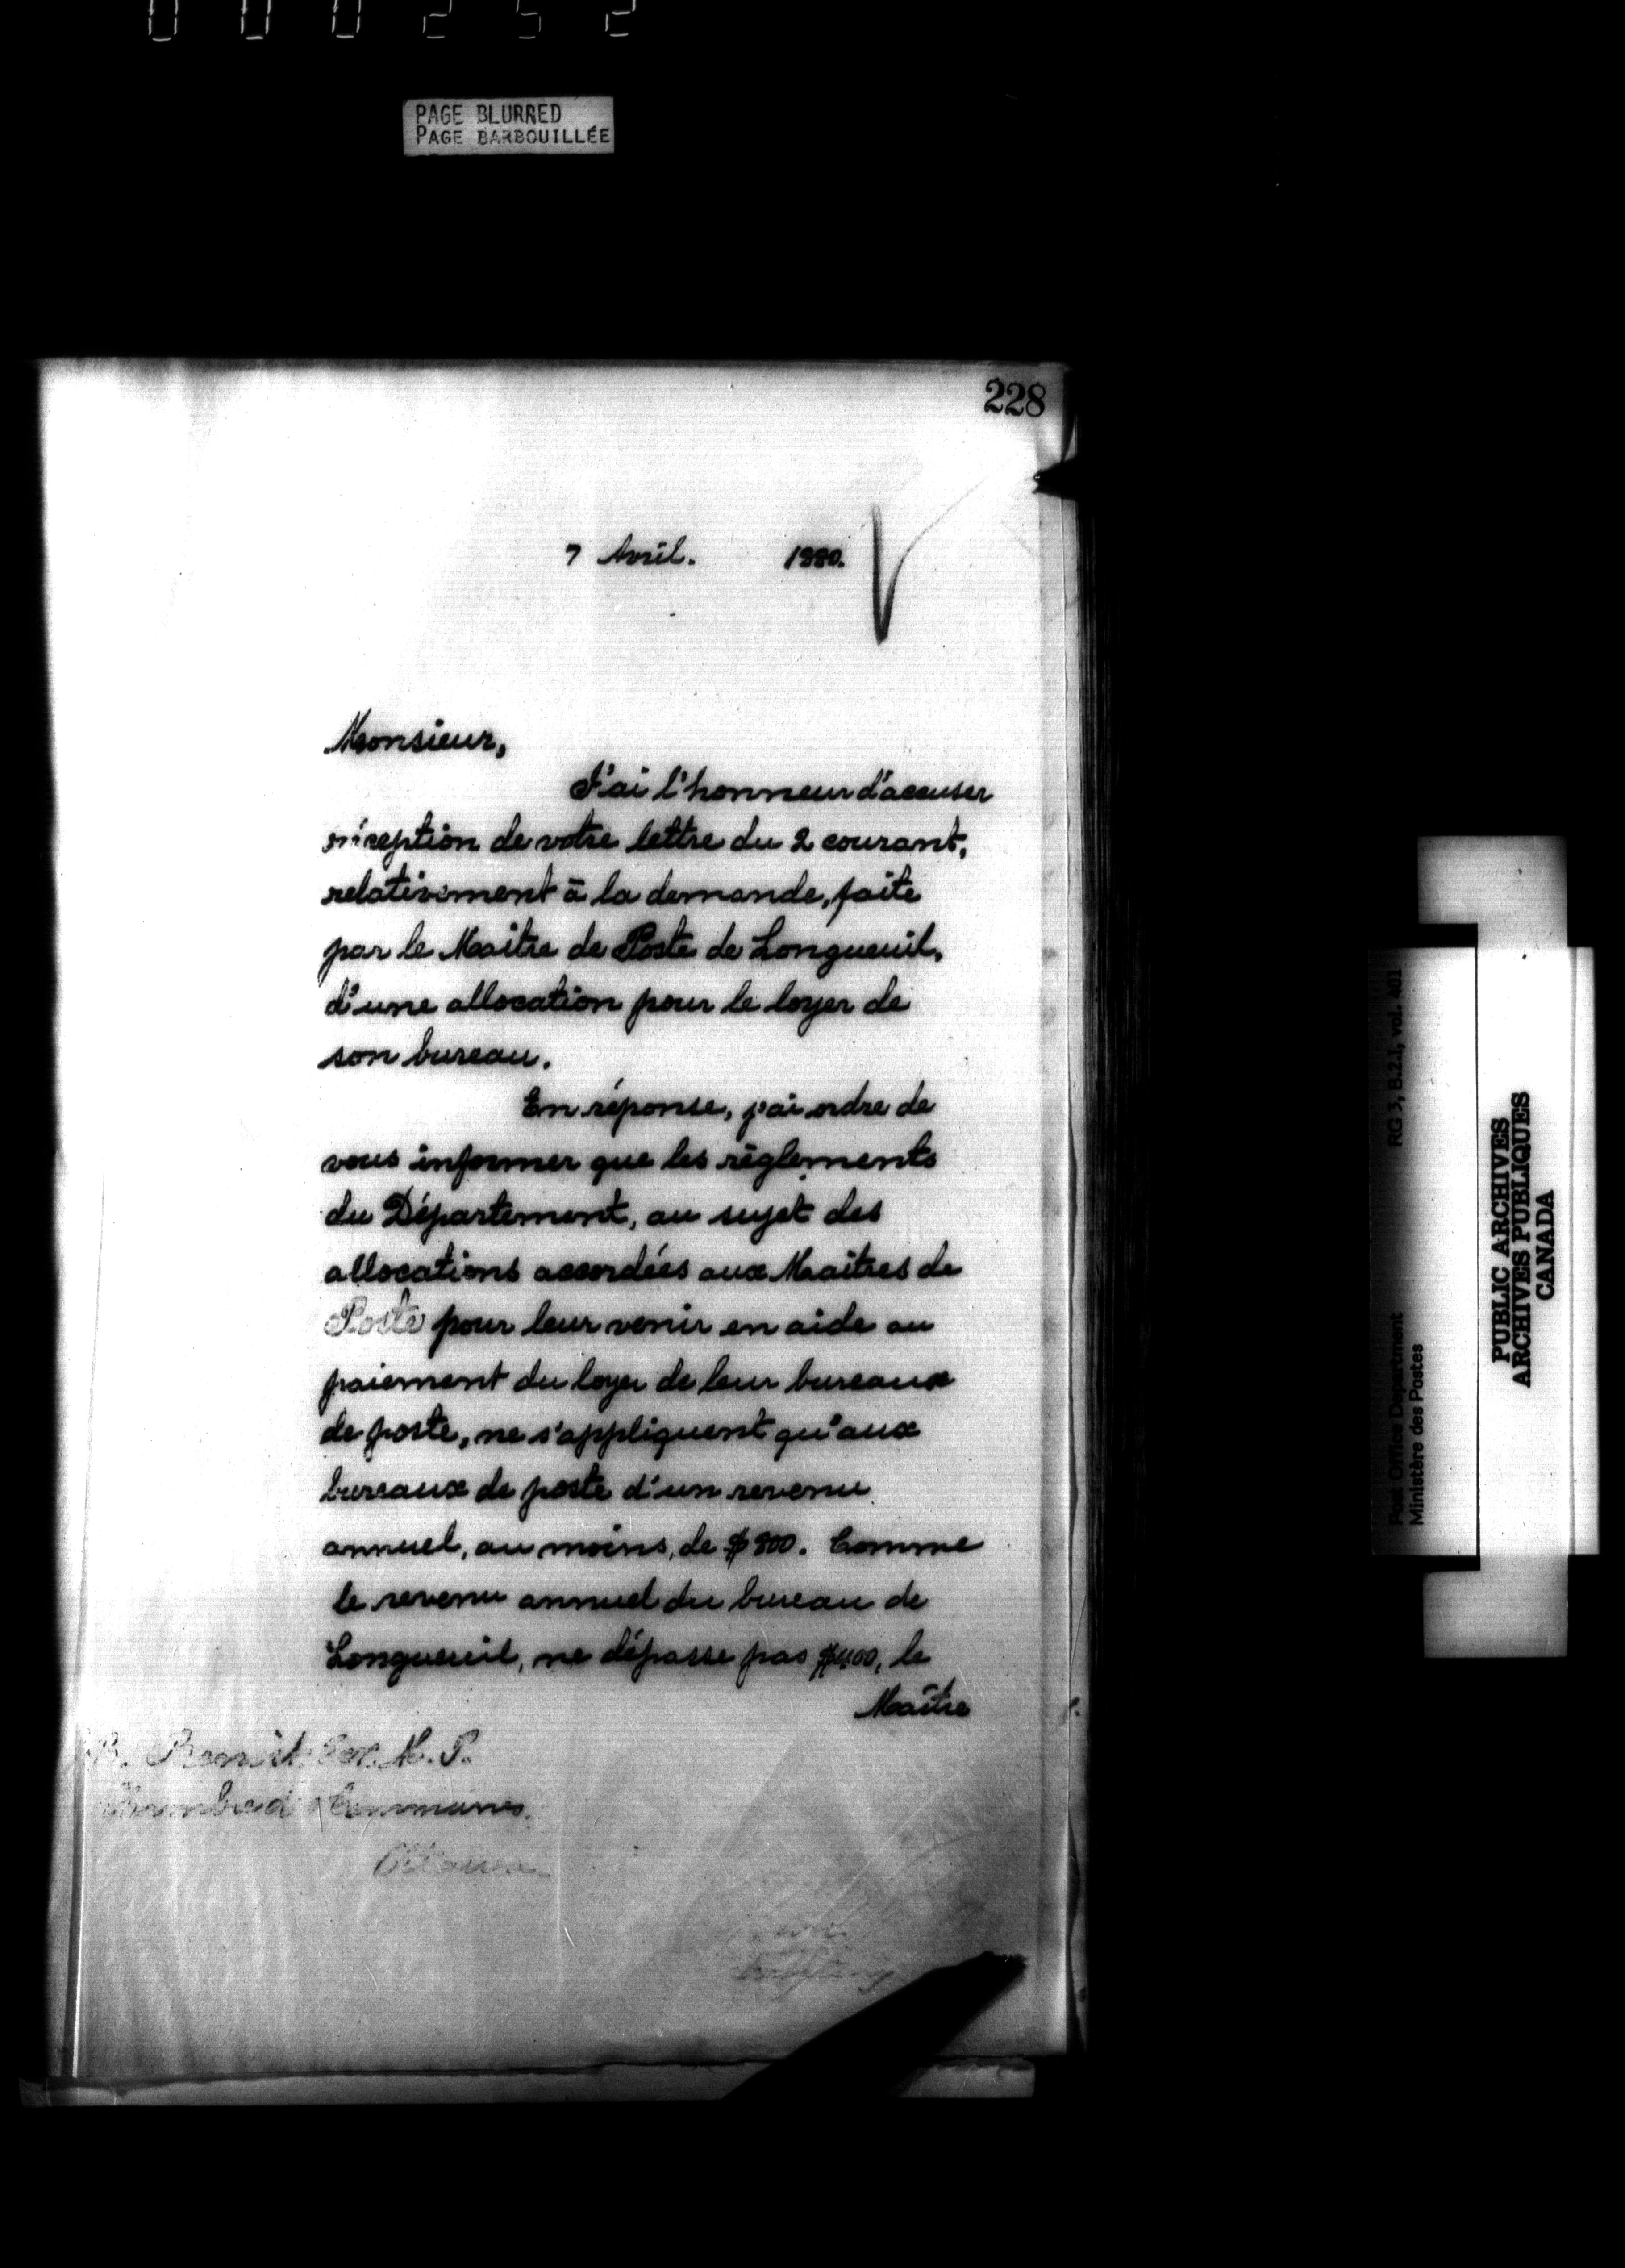 000252
PAGE BLURRED
PAGE BARBOUILLÉE
228
7 Avril. 1880.
Monsieur,
J'ai l'honneur d'accuser
réception de votre lettre du 2 courant,
relativement à la demande, faite
par le Maître de Poste de Longueuil,
d'une allocation pour le loyer de
son bureau.
En réponse, j'ai ordre de
vous informer que les règlements
du Département, au sujet des
allocations accordées aux Maîtres de
Poste pour leur venir en aide au
paiement du loyer de leur bureaux
de poste, ne s'appliquent qu'aux
bureaux de poste d'un revenu
annuel, au moins, de $800. Comme
le revenu annuel du bureau de
Longueuil, ne dépasse pas $400, le
Maître
B. Benoit, M. P.
Chambre d Communes.
Ottawa
RG 3, B.2.1, vol. 401
Post Office Department
Ministère des Postes
PUBLIC ARCHIVES
ARCHIVES PUBLIQUES
CANADA